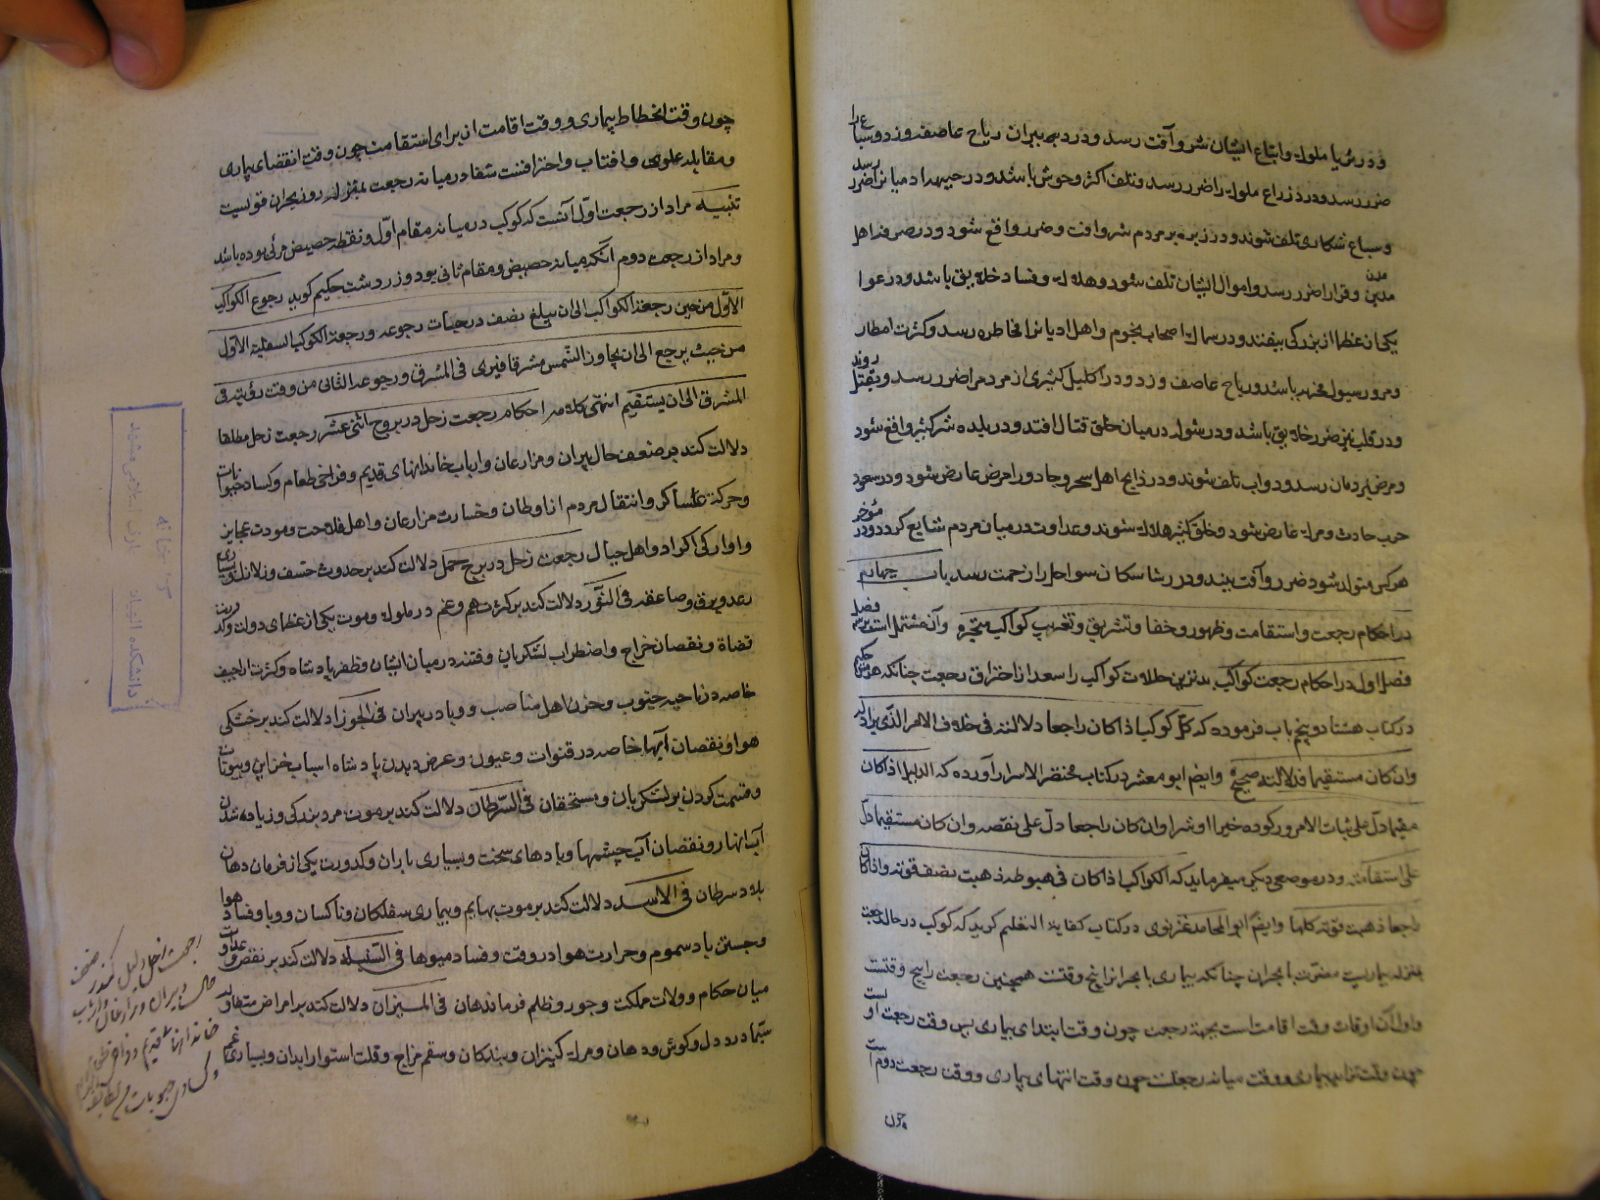 و در ثریا ملوک و اتباع ایشان شر و آفت رسد و در دبران ریاح عاصف وزد و سباع را
ضرر رسد و در ذراع ملوک را ضرر رسد و تلف اکثر وحوش باشد و در جبهه دامیانرا ضرر رسد
و سباع شکاری تلف شوند و در زبره بر مردم شر و افت و ضرر واقع شود و در صرفه اهل
مدن و قرا را ضرر رسد و اموال ایشان تلف شود و هلاک و فساد خلایق باشد و در عوا
یکی از عظما از بزرگی بیفتد و در سماک اصحاب نجوم و اهل ادیانرا مخاطره رسد و کثرت امطار
و مرور سیول مخربه باشد و ریاح عاصف وزد و در اکلیل کثیری از مردم را ضرر رسد و بقتل روند
و در قلب نیز ضرر خلایق باشد و در شوله در میان خلق قتال افتد و در بلده شر کثیر واقع شود
و مرض بمردمان رسد و دواب تلف شوند و در ذابح اهل سحر و جادو را مرض عارض شود و در سعود
حرب حادث و مرگ عارض شود و خلق کثیر هلاک شوند و عداوت در میان مردم شایع کردد و در مؤخر
هرکس متولد شود ضرر و آفت بیند و در رشا سکان سواحل را زحمت رسد باب چهارم
در احکام رجعت و استقامت و ظهور و خفا و تشریق و تغریب کواکب متحیره و آن مشتمل است بر سه فصل
فصل اول در احکام رجعت کواکب بدترین حالات کواکب را بعد از احتراق رجعت چنانکه هرمس حکیم
در کتاب هشتاد و پنج باب فرموده که کل کوکب اذا کان راجعا دلالته فی خلاف الامر الذی یراد له
وان کان مستقیما فدلالته صحیح و ایضا ابو معشر در کتاب مختصر الاسرار آورده که الدلیل اذا کان
مقیما دل علی ثبات الامور کوده خیرا او شرا وان کان راجعا دل علی نقصه وان کان مستقیما دل
علی استقامته و در موضعی دیگر میفرماید که الکواکب اذا کان فی هبوطه ذهبت نصف قوته و اذا کان
راجعا ذهبت قوته کلها و ایضا ابوالمحامد غزنوی در کتاب کفایة التعلیم کوید که کوکب در حال رجعت
بمنزله بیماریست مقرون با بحران چنانکه بیماری با بحرانرا پنج وقتست همچنین رجعت را پنج وقتست
و اول آن اوقات وقت اقامت است بجهة رجعت چون وقت ابتدای بیماری پس وقت رجعت اولست
چون وقت تزاید بیماری و وقت میانه رجعت چون وقت انتهای بیماری و وقت رجعت دوم است
چون
چون وقت انحطاط بیماری و وقت اقامت از برای استقامت چون وقت انقضای بیماری
و مقابله علوی و افتاب و احتراق شفا در میانه رجعت بمنزله روز بحران قویست
تنبیه مراد از رجعت اول آنست که کوکب در میانه مقام اول و نقطه حضیض مرئی بوده باشد
و مراد از رجعت دوم آنکه میانه حضیض و مقام ثانی بود و زردشت حکیم کوید رجوع الکواکب
الاول من حین رجعة الکواکب الی ان یبلغ نصف درجات رجوعه و رجعة الکواکب السفلیة الاول
من حیث یرجع الی ان یجاوز الشمس مشرقا فیری فی المشرق و رجوعه الثانی من وقت رؤیته فی
المشرق الی ان یستقیم انتهی کلامه احکام رجعت زحل در بروج اثنی عشر رجعت زحل مطلقا
دلالت کند بر ضعف حال پیران و مزارعان و ارباب خاندانهای قدیم و فراخی طعام و کساد حبوبات
و حرکة عساکر و انتقال مردم از اوطان و خسارت مزارعان و اهل فلاحت و موت عجایز
و اوارکی اکراد و اهل جبال رجعت زحل در برج حمل دلالت کند بر حدوث خسف و زلازل و بسیاری
رعد و برق و صاعقه فی الثور دلالت کند بر کثرت هم و غم در ملوک و موت یکی از عظمای دولت و
قضاة و نقصان خراج و اضطراب لشکریان و فتنه در میان ایشان و ظفر پادشاه و کثرت اراجیف
خاصه در ناحیه جنوب و حزن اهل مناصب و وبا در پیران فی الجوزا دلالت کند بر خشکی
هوا و نقصان آبها خاصه در قنوات و عیون و عرض دیدن پادشاه اسباب خزاین و بیوتات
و قسمت کردن بر لشکریان و مستحقان فی السرطان دلالت کند بر موت مرد بزرگی و زیاده شدن
آب انهار و نقصان آب چشمها و بادهای سخت و بسیاری باران و کدورت یکی از فرمان دهان
بلاد سرطان فی الاسد دلالت کند بر موت بهایم و بیماری سفلکان و ناکسان و وبا و فساد هوا
و جستن باد سموم و حرارت هوا در وقت و فساد میوها فی السنبله دلالت کند بر نقض و عداوت
میان حکام و ولات مملکت و جور و ظلم فرماندهان فی المیزان دلالت کند بر امراض متفاوت
سیما درد دل و کوش و دهان و مرگ کنیزان و بندکان و سقم مزاج و قلت استوار ابدان و بسیاری غم
رجعت زحل دلیل کند بر ضعف
حالت پیران و مزارعان و ارباب
خاندانها قدیم و فراخی طعام
و کسادی حبوبات
کتابخانه
دانشکده الهیات و معارف اسلامی مشهد